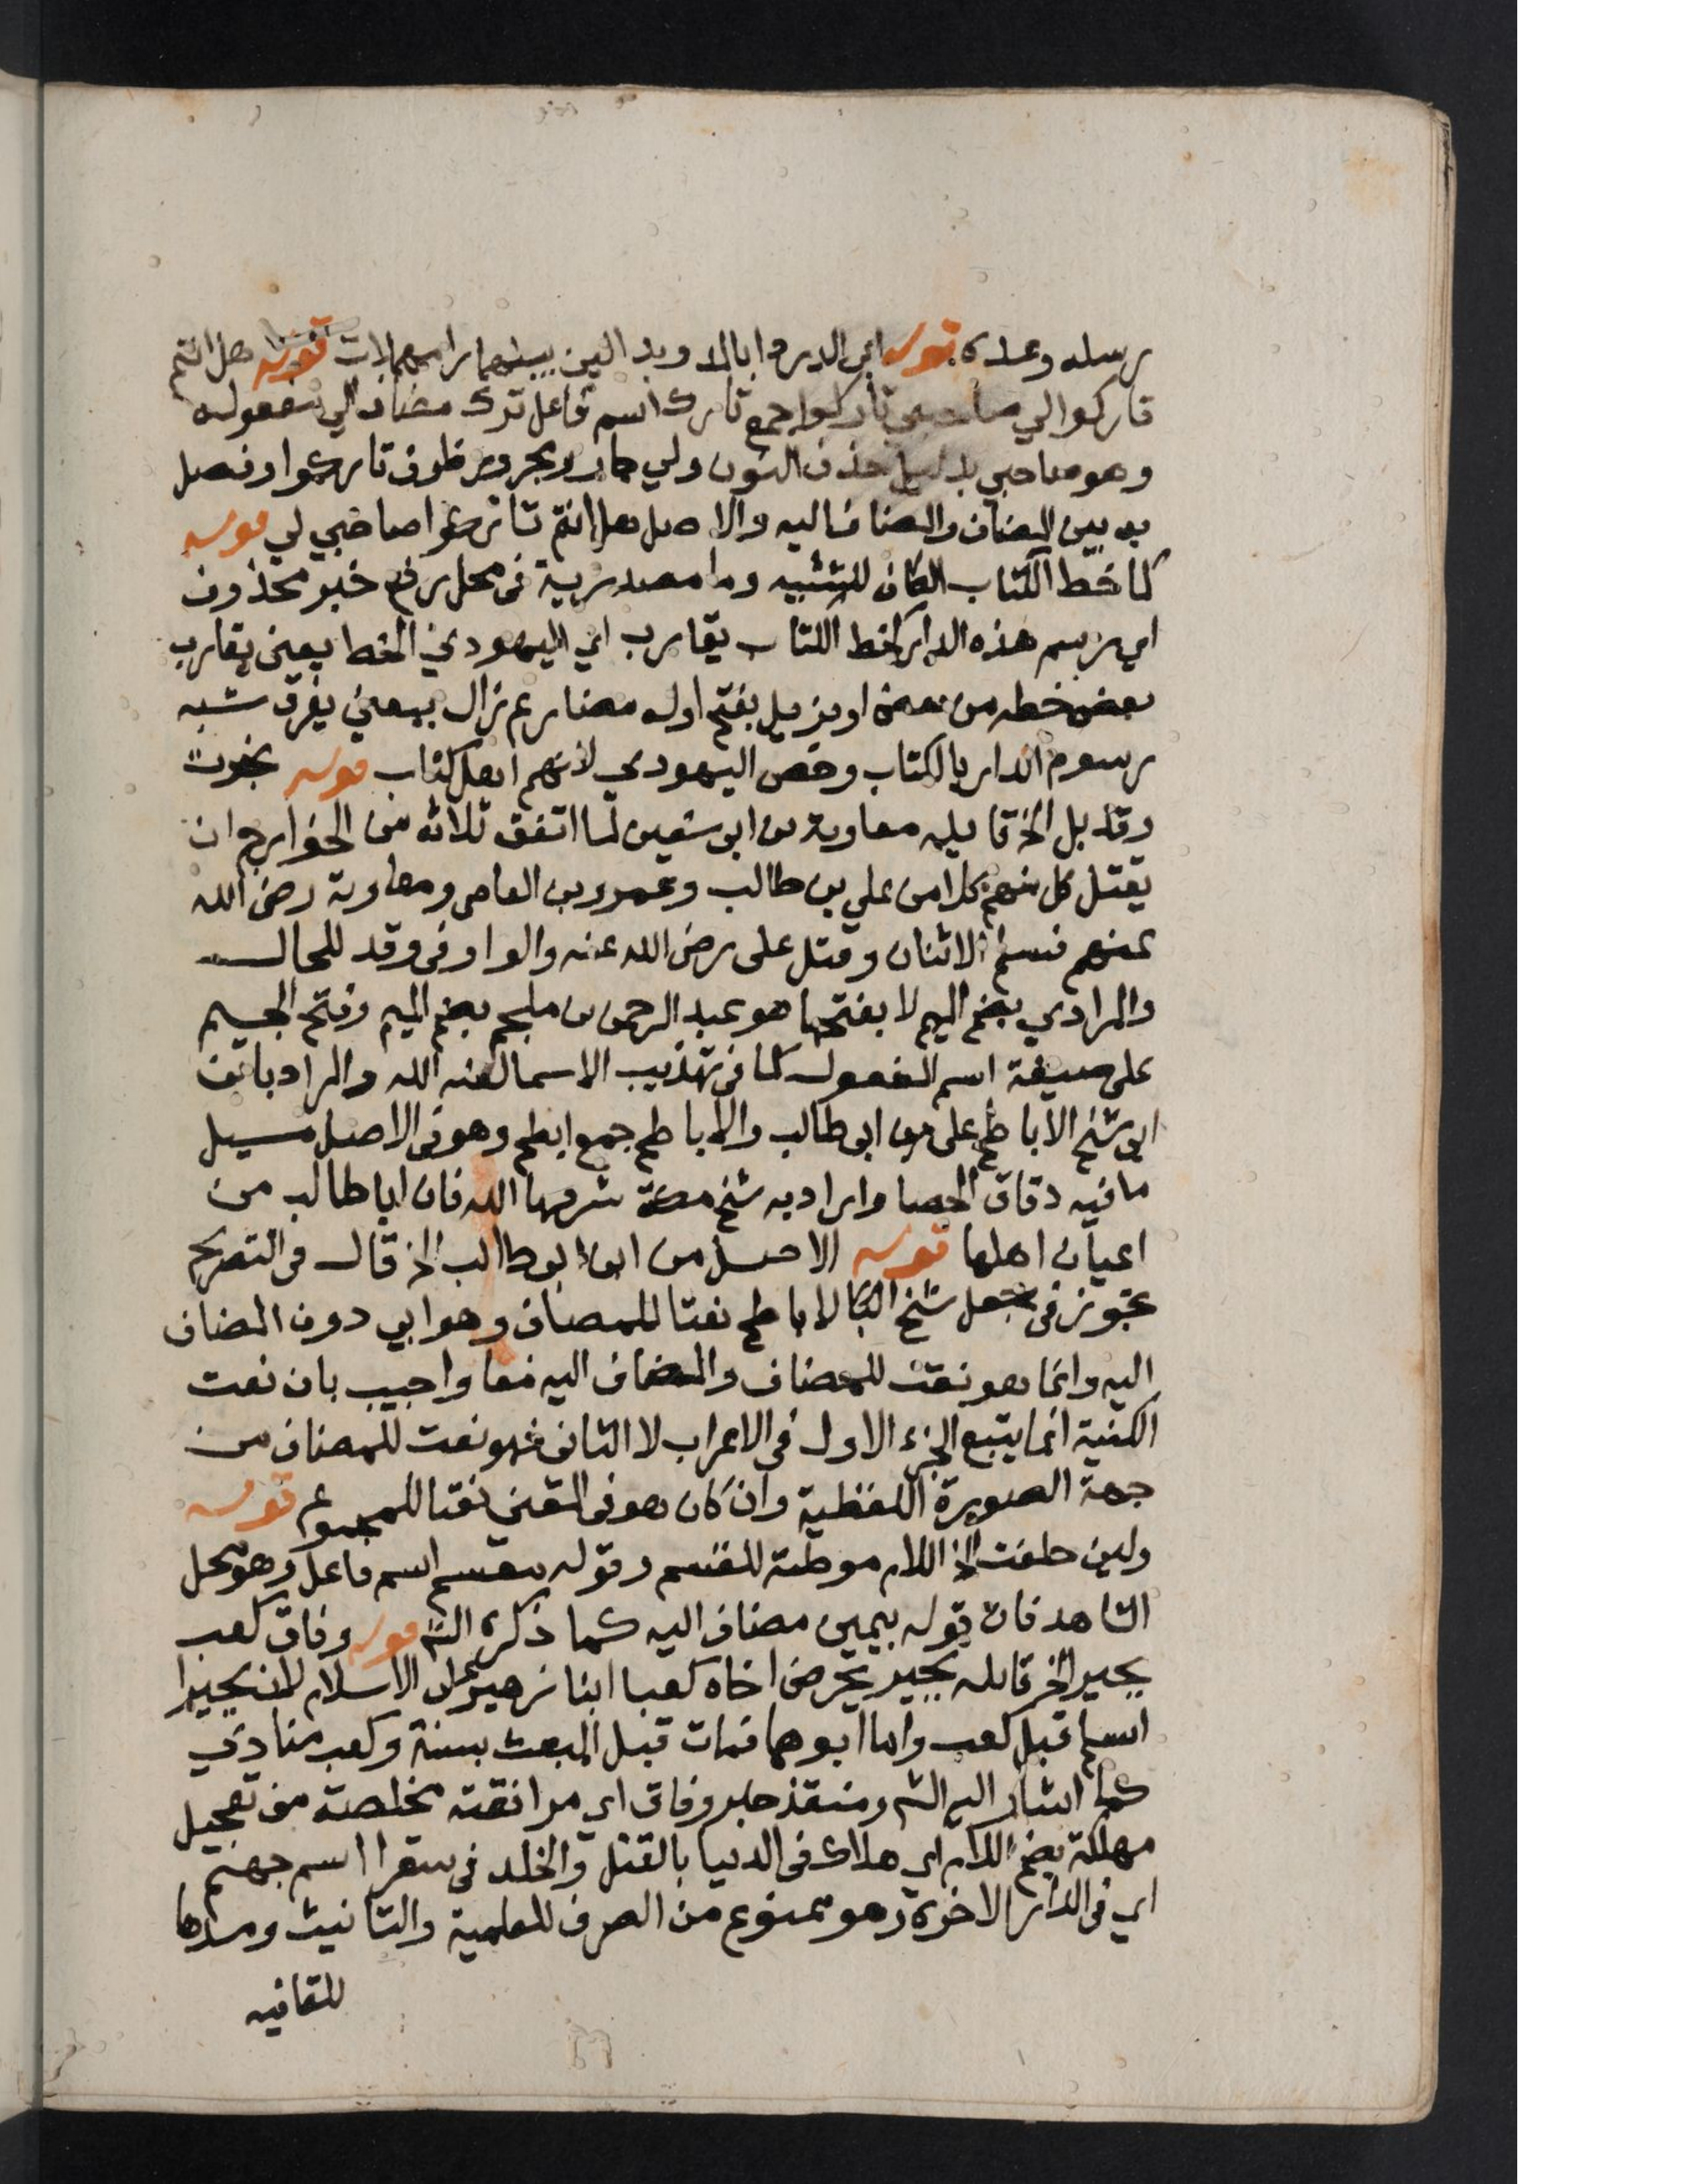 رسله وعده قوله ابي الدرداء بالمد وبدالين بينهما را مهملات قوله هل انتم
تاركوا لي صاحبي تاركوا جمع تارك اسم فاعل ترك مضاف الي مفعوله
وهو صاحبي بدليل حذف النون ولي جار ومجرور ظرف تاركوا وفصل
به بين المضاف والمضاف اليه والاصل هل انتم تاركوا صاحبي لي قوله
كما خط الكتاب الكاف للتشبيه وما مصدرية فى محل رفع خبر محذوف
اي رسم هذه الدار كخط الكتاب يقارب اي اليهودي الخط بمعنى يقارب
بعض خطه من بعض او يزيل بفتح اوله مضارع زال بمعنى يفرق شبه
رسوم الدار بالكتاب وخص اليهودي لانهم اهل كتاب قوله نجوت
وقد بل الخ قايله معاوية بن ابى سفين لما اتفق ثلاثه من الخوارج ان
يقتل كل منهم كلا من علي بن طالب وعمرو بن العاص ومعاوية رضى الله
عنهم فسلم الاثنان وقتل على رضى الله عنه والواو فى وقد للحال
والمرادي بضم الميم لا بفتحها هو عبد الرحمن بن ملجم بضم الميم وفتح الجيم
على صيغة اسم المفعول كما فى تهذيب الاسما لعنه الله والمراد بابن
ابى شيخ الاباطح على بن ابى طالب والاباطح جمع ابطح وهو فى الاصل مسيل
ما فيه دقاق الحصا واراد به شيخ مكة شرفها الله فان ابا طالب من
اعيان اهلها قوله الاصل من ابى ابوطالب الخ قال فى التصريح
تجوز فى جعل شيخ الاباطح نعتا للمضاف وهو ابي دون المضاف
اليه وانما هو نعت للمضاف والمضاف اليه معا واجيب بان نعت
الكنية انما يتبع الجزء الاول فى الاعراب لا الثانى فهو نعت للمضاف من
جهة الصورة اللفظية وان كان هو فى المعنى نعتا للمجموع قوله
ولين حلفت الخ اللام موطئة للقسم وقوله مقسم اسم فاعل وهو محل
الشاهد فان قوله بيمين مضاف اليه كما ذكره الش قوله وفاق كعب
بجير الخ قايله بجير يحرض اخاه كعبا ابنا زهير على الاسلام لان بجيرا
اسلم قبل كعب واما ابوهما فمات قبل المبعث بسنة وكعب منادي
كما اشار اليه الش ومنقذ خبر وفاق اي موافقته مخلصة من تعجيل
مهلكة بضم اللام اي هلاك فى الدنيا بالقتل والخلد فى سقرا اسم جهنم
اي فى الدار الاخرة وهو ممنوع من الصرف للعلمية والتانيث ومدها
للقافيه